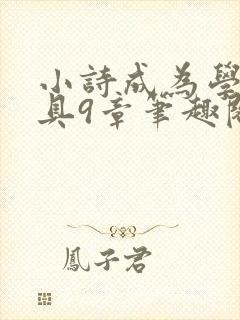 小詩成為學
具9章筆趣閣
鳳子君